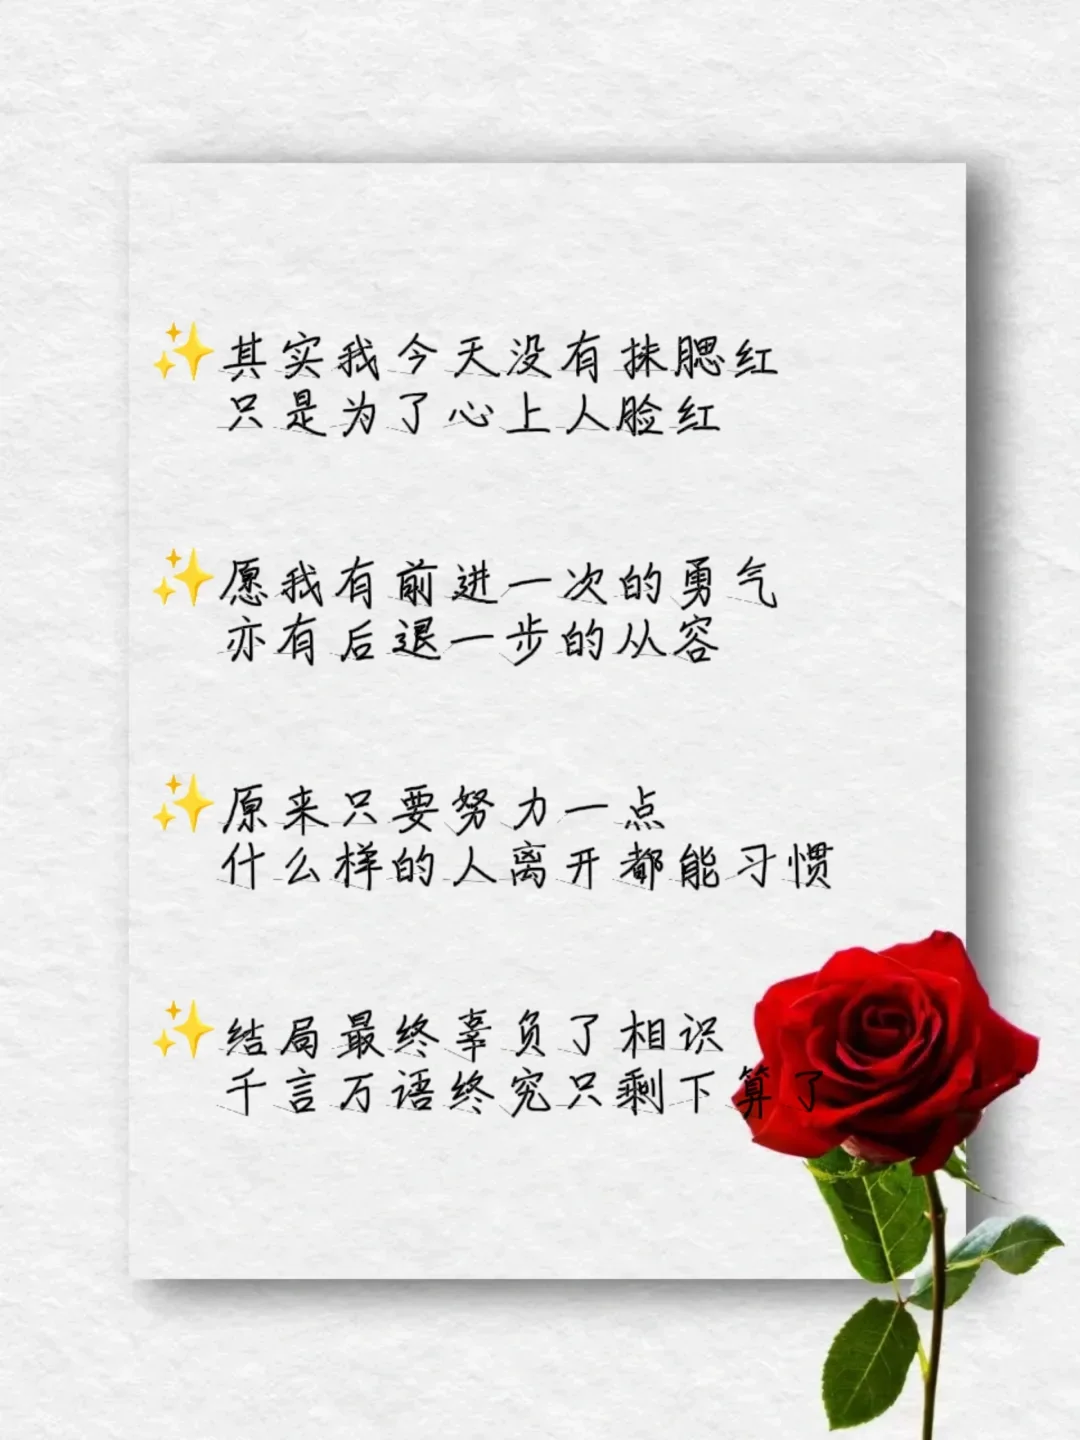 ✨其实我今天没有抹腮红
只是为了心上人脸红
✨愿我有前进一次的勇气
亦有后退一步的从容
✨原来只要努力一点
什么样的人离开都能习惯
✨结局最终辜负了相识
千言万语终究只剩下算了